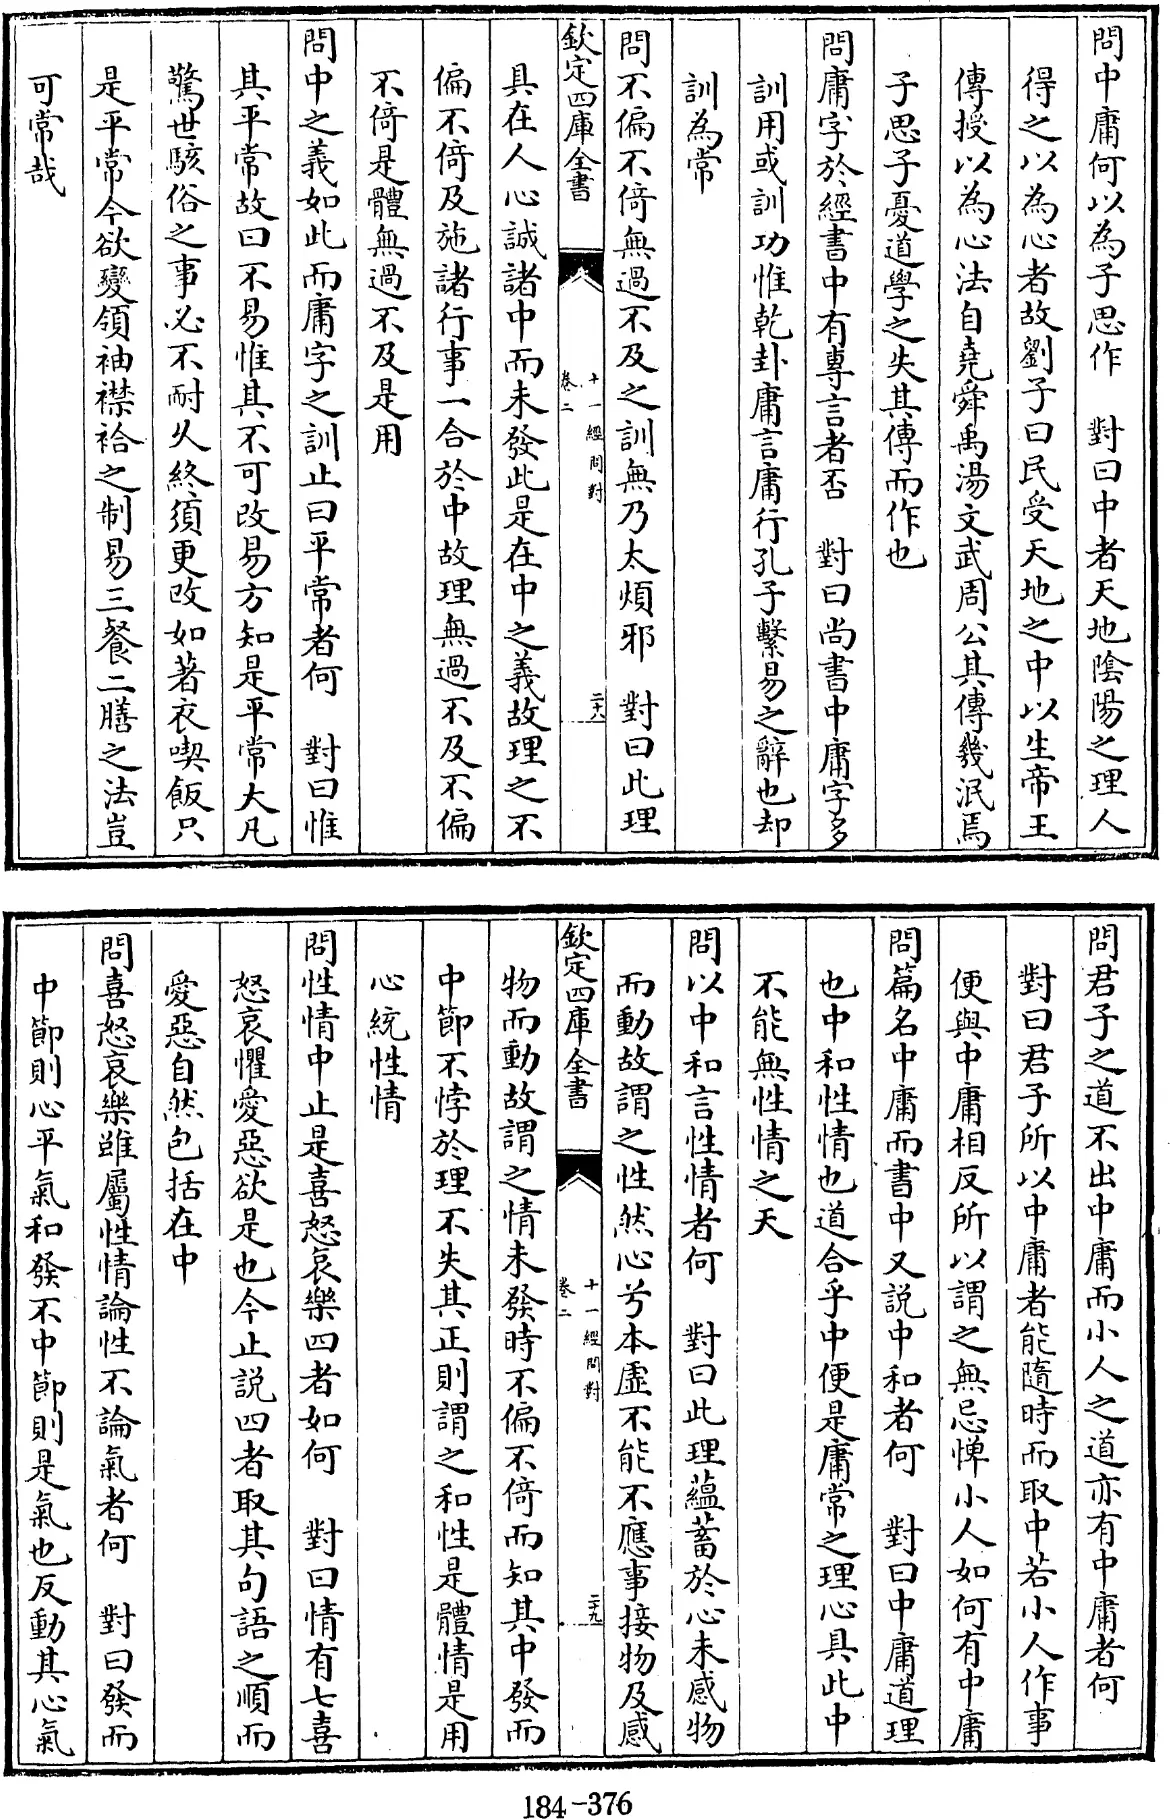 問中庸何以為子思作　對曰中者天地陰陽之理人
得之以為心者故劉子曰民受天地之中以生帝王
傳授以為心法自堯舜禹湯文武周公其傳幾泯焉
子思子憂道學之失其傳而作也
問庸字於經書中有專言者否　對曰尚書中庸字多
訓用或訓功惟乾卦庸言庸行孔子繫易之辭也却
訓為常
問不偏不倚無過不及之訓無乃太煩邪　對曰此理
欽定四庫全書
十一經問對
卷二
二十八
具在人心誠諸中而未發此是在中之義故理之不
偏不倚及施諸行事一合於中故理無過不及不偏
不倚是體無過不及是用
問中之義如此而庸字之訓止曰平常者何　對曰惟
其平常故曰不易惟其不可改易方知是平常大凡
驚世駭俗之事必不耐久終須更改如著衣喫飯只
是平常今欲變領袖襟袷之制易三餐二膳之法豈
可常哉
問君子之道不出中庸而小人之道亦有中庸者何
對曰君子所以中庸者能隨時而取中若小人作事
便與中庸相反所以謂之無忌憚小人如何有中庸
問篇名中庸而書中又說中和者何　對曰中庸道理
也中和性情也道合乎中便是庸常之理心具此中
不能無性情之天
問以中和言性情者何　對曰此理蘊蓄於心未感物
而動故謂之性然心兮本虛不能不應事接物及感
欽定四庫全書
十一經問對
卷二
二十九
物而動故謂之情未發時不偏不倚而知其中發而
中節不悖於理不失其正則謂之和性是體情是用
心統性情
問性情中止是喜怒哀樂四者如何　對曰情有七喜
怒哀懼愛惡欲是也今止說四者取其句語之順而
愛惡自然包括在中
問喜怒哀樂雖屬性情論性不論氣者何　對曰發而
中節則心平氣和發不中節則是氣也反動其心氣
184-376